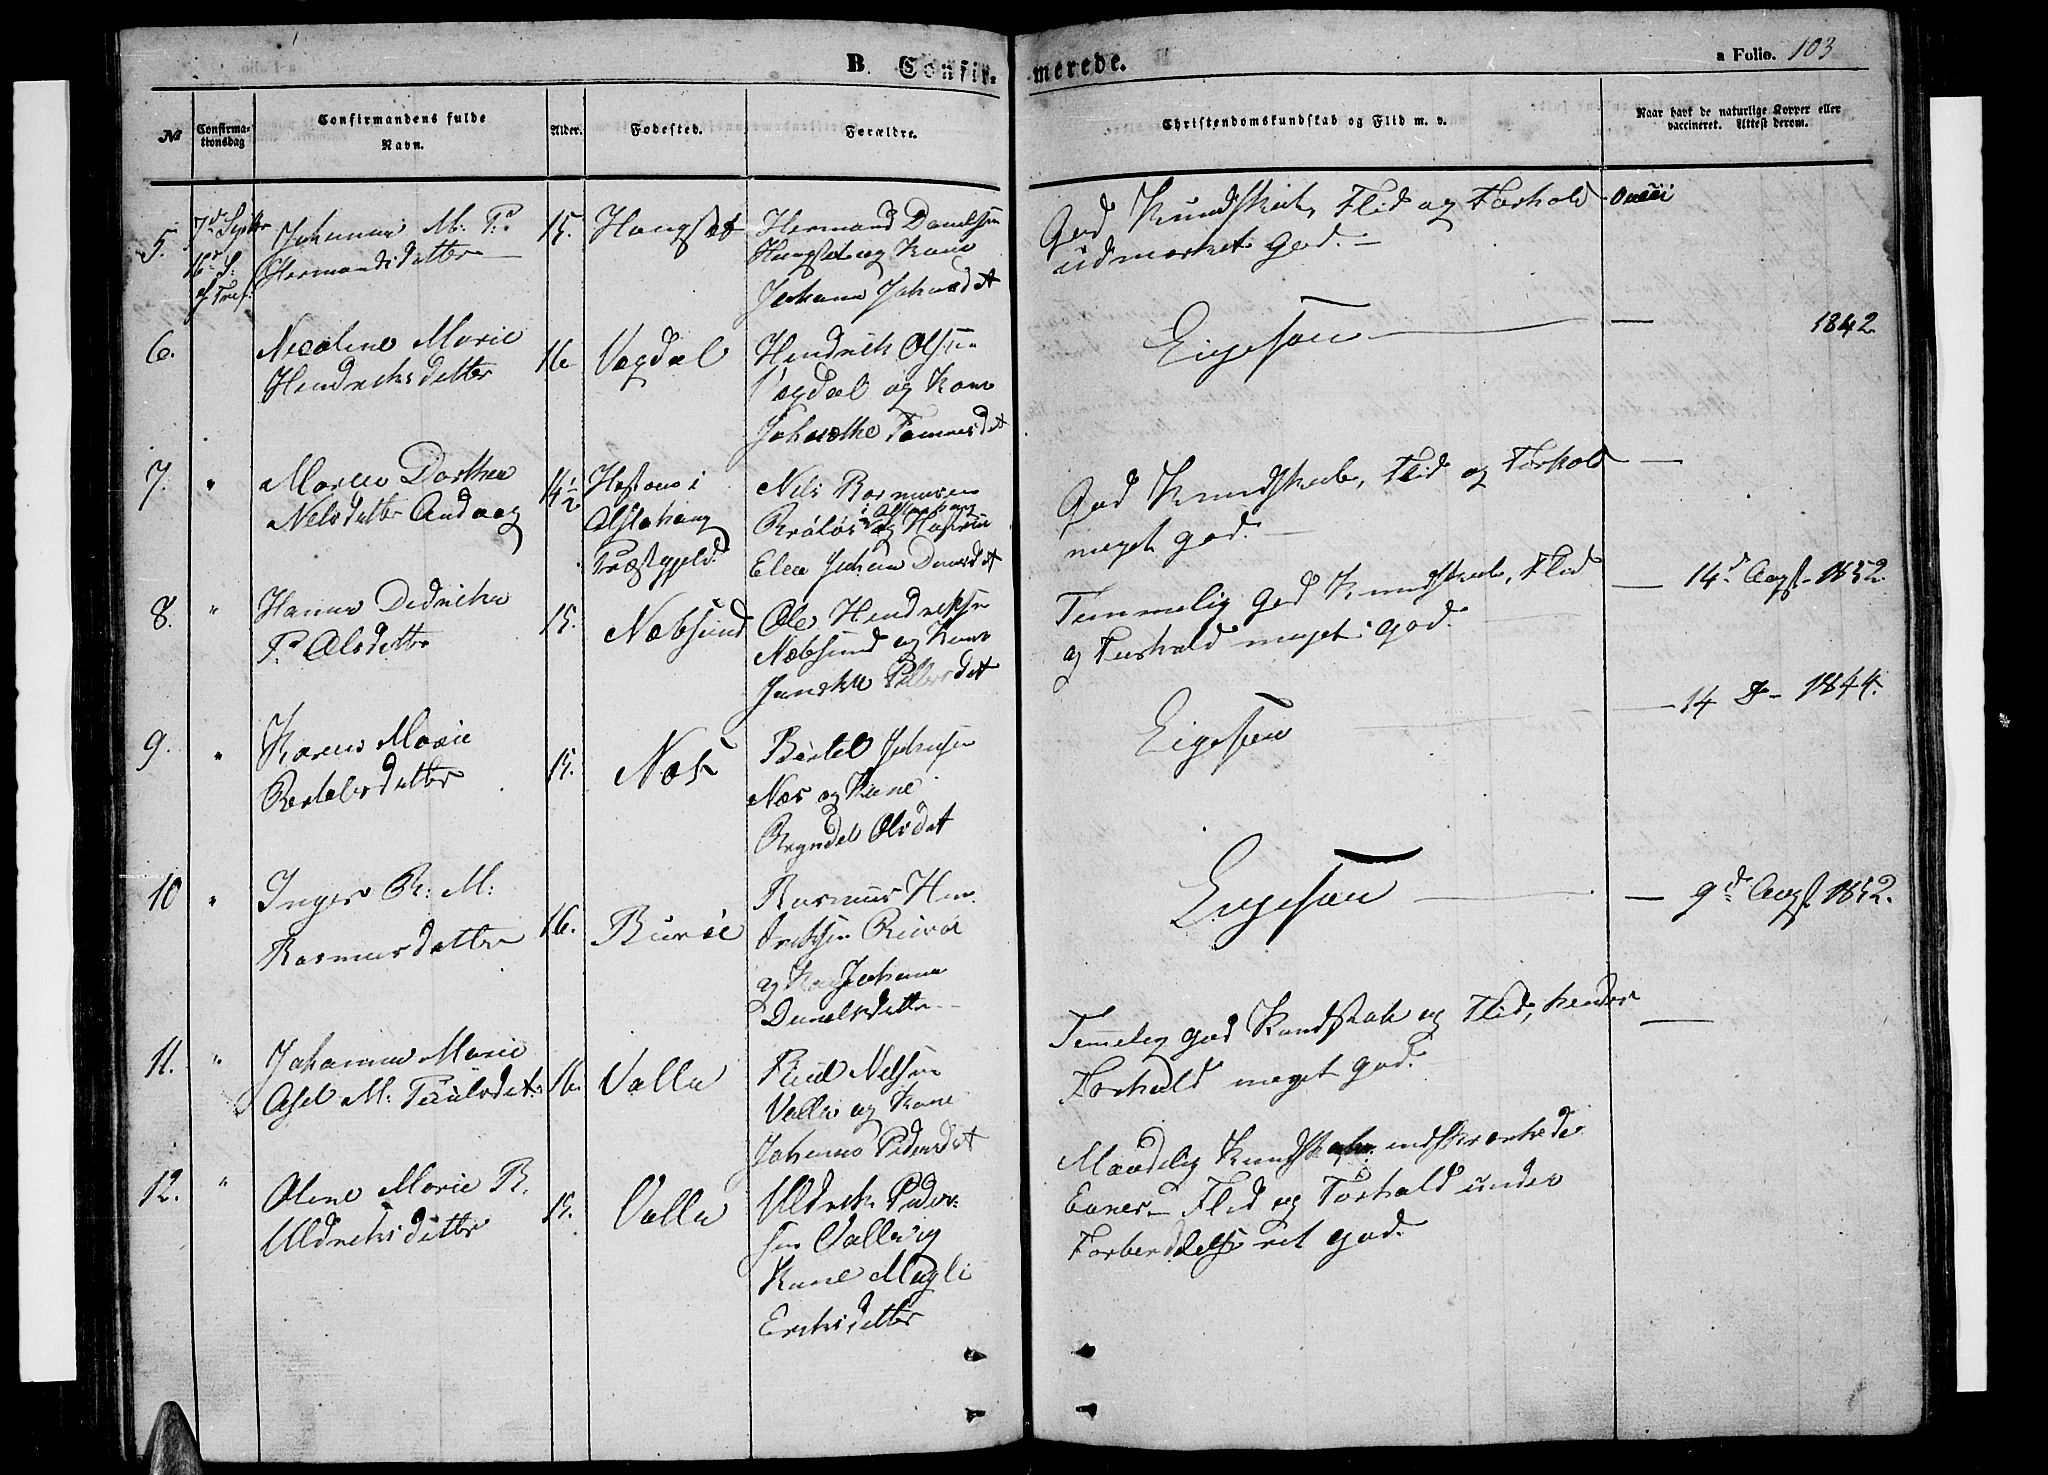 B. Confir-
merede.
a Folio. 103
No
Confirma-
tionsdag
Confirmandens fulde
Navn.
Alder.
Fødested.
Forældre.
Christendomskundskab og Flid m. v.
Naar havt de naturlige Kopper eller
vaccineret. Attest derom.
5.
Johanna M. P.
Hermandsdatter
15.
Hermand Danielsen
og Kone
God Kundskab, Flid og Forhold
udmærket god.
6.
Nicoline Marie
Hendriksdatter
16
Vagdal
Hendrik Olsen
Vagdal og Kone
Ligesaa
1842
7. "
Maren Dorthea
Nelsdatter
14½
Alstahaug
Præstgjeld
Nils Rasmusen
God Kundskab, Flid og Forhold
meget god.
8. "
Hanna Dedrikke
P. Olsdatter
15.
Næbsund
Ole Hendriksen
Næbsund og Kone
Temmelig God Kundskab, Flid
og Forhold meget god.
14d Augst 1852.
9. "
Karen Marie
Bertelsdatter
15.
Næs
Bertel Johnsen
Næs og Kone
Ragndel Olsdat
Ligesaa
14 D 1844.
10 "
Inger B. M.
Rasmusdatter
16.
Burøe
Rasmus Hen-
driksen Burøe
og Kone Johanna
Danielsdatter
Ligesaa
9d Augst 1852.
11. "
Johanna Marie
Axel M. Paulsdat.
16.
Valla
Paul Nelsen
Valla og Kone
Johanna Pedersdat
Temelig god Kundskab og Flid, hendes
Forhold meget god.
12. "
Oline Marie B.
Uldriksdatter
15.
Valla
Uldrik Peder-
sen Valla og
Kone Magli
Eriksdatter
Maadelig Kundskab indskrænkede
Evner. Flid og Forhold under
Forberedelse ret god.